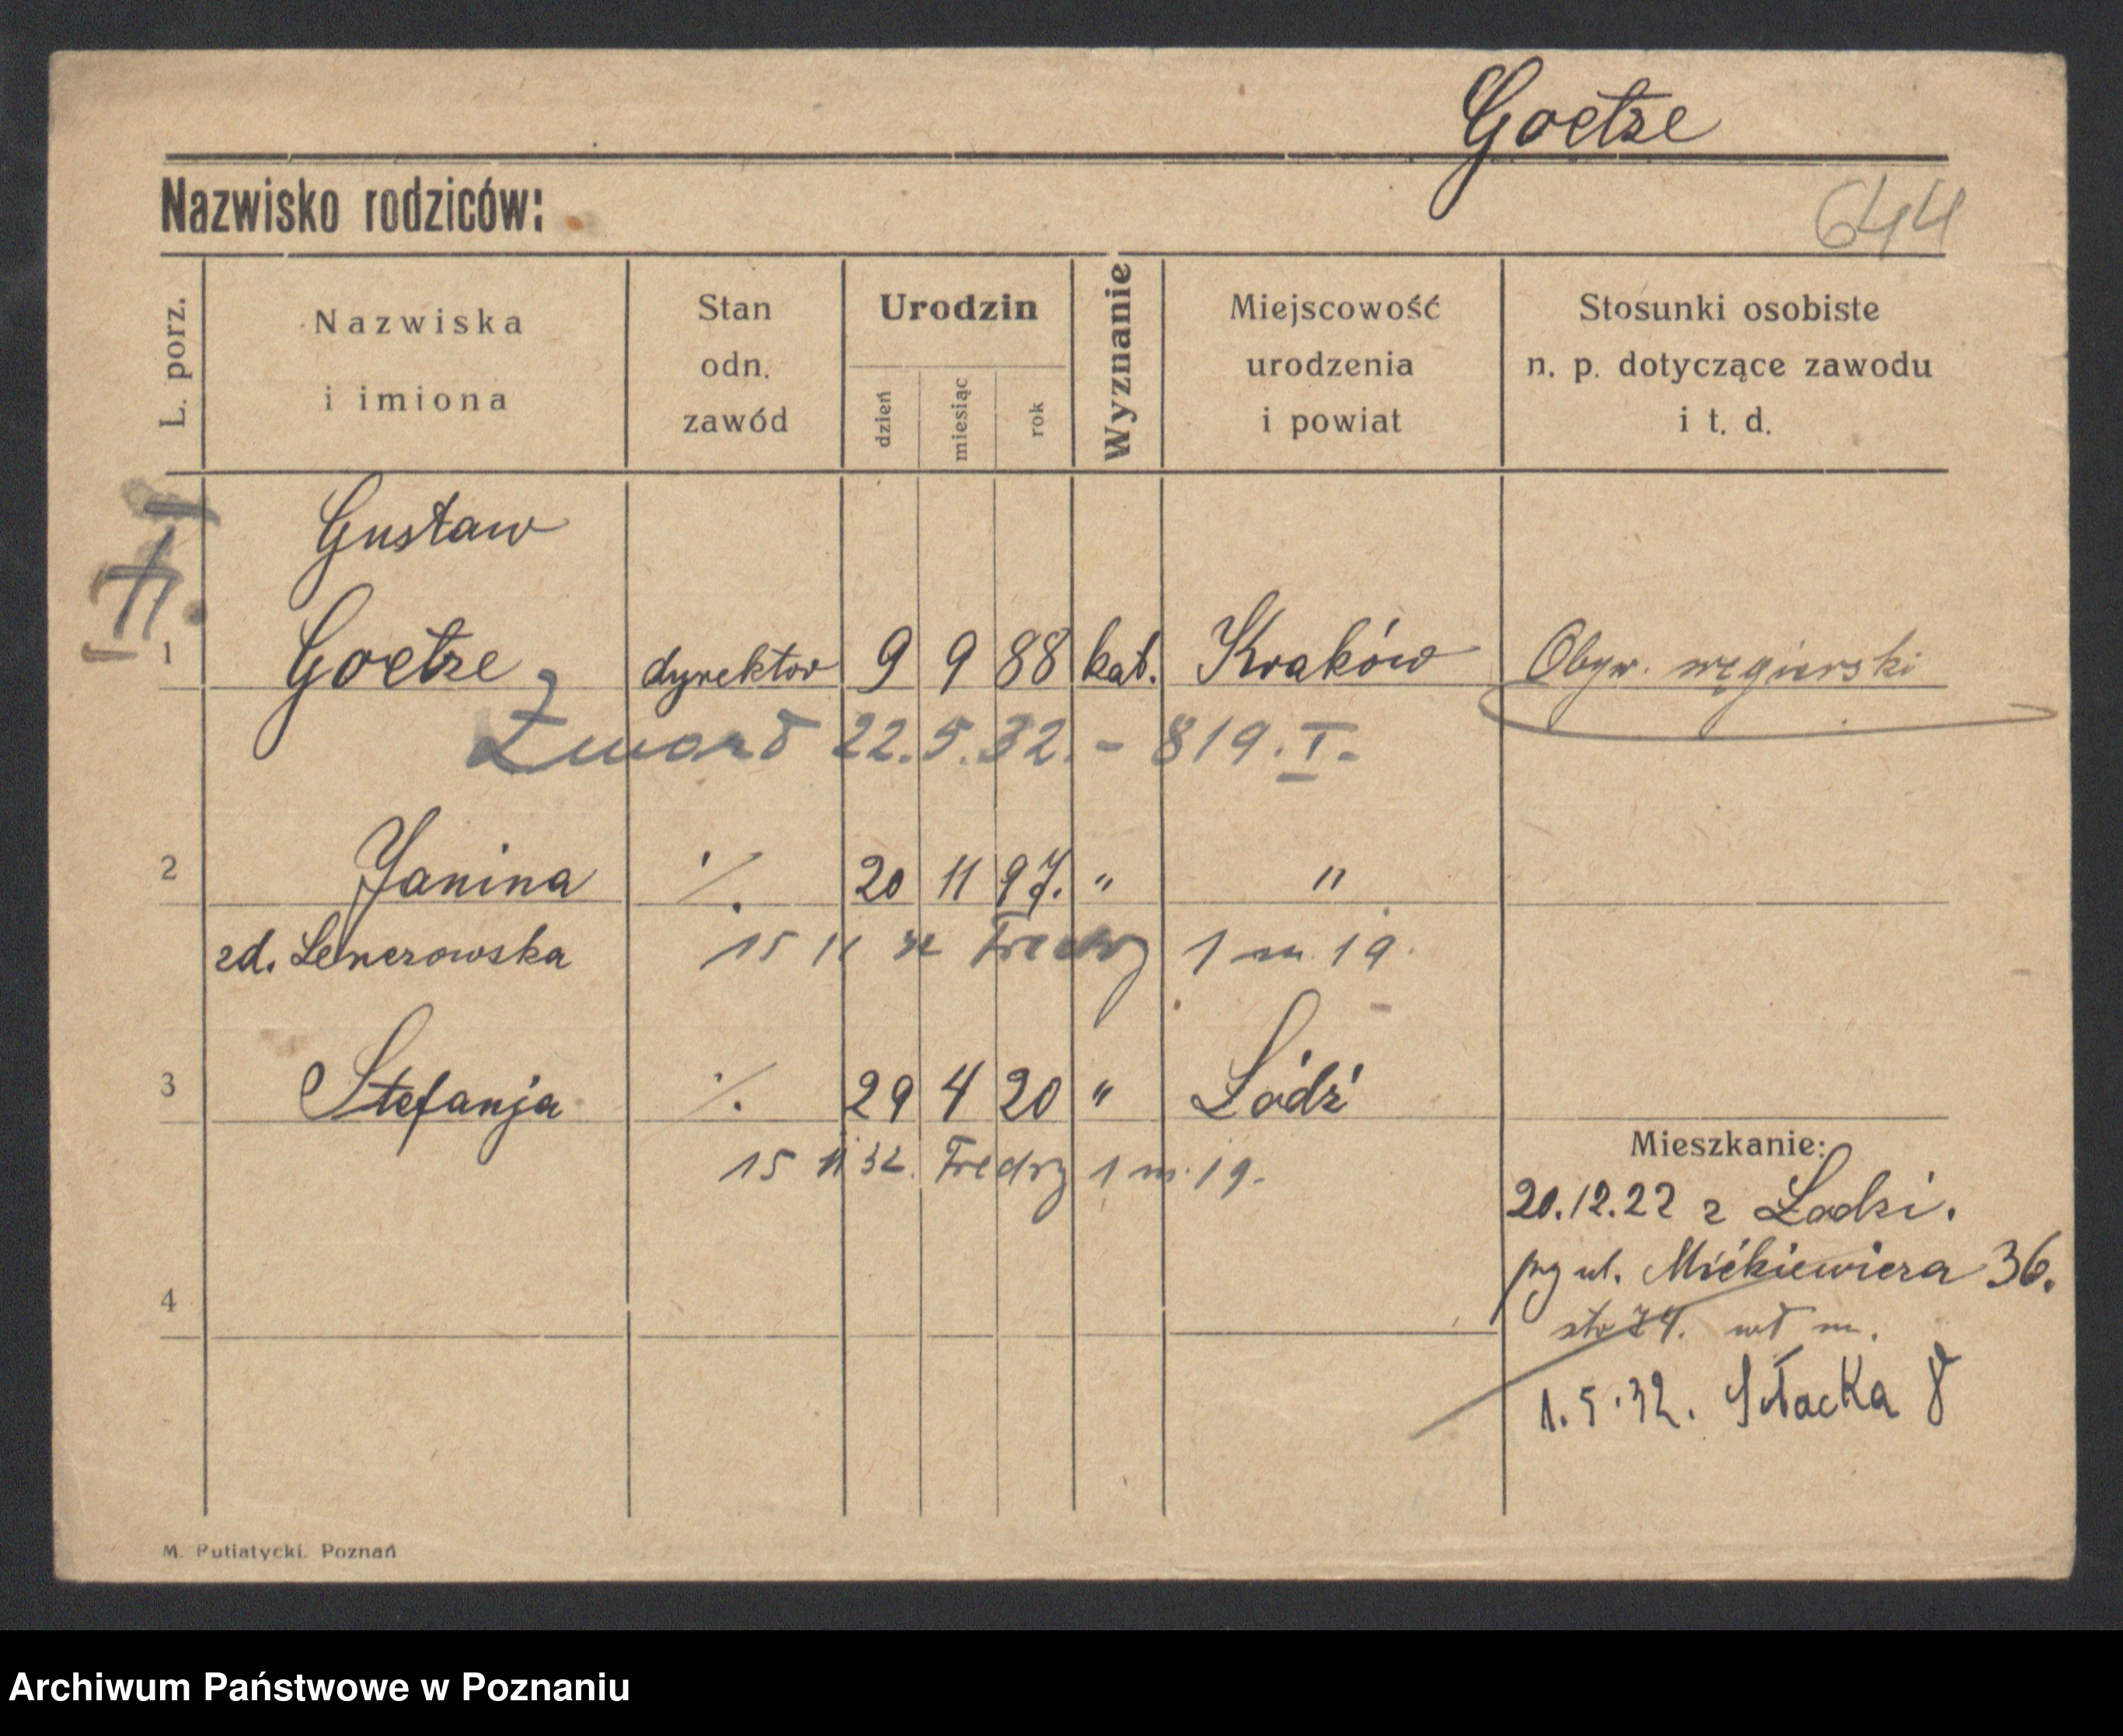 Goetze
Nazwisko rodziców:
644
L. porz.
Nazwiska
i imiona
Stan
odn.
zawód
Urodzin
dzień
miesiąc
rok
Wyznanie
Miejscowość
urodzenia
i powiat
Stosunki osobiste
n. p. dotyczące zawodu
i t. d.
Gustaw
1 Goetze dyrektor 9 9 88 kat. Kraków Obyw. węgierski
Zmarł 22.5.32. - 819. I. -
2 Janina ·/. 20 11 97. " "
zd. Lenerowska
15 11 32 Fredry 1 m. 19.
3 Stefanja ·/. 29 4 20 " Łódź
15 11 32. Fredry 1 m. 19.
Mieszkanie:
20.12.22 z Łodzi.
pzy ul. Mićkiewicza 36.
wł m.
4
1.5.32. Słacka 8
M. Putiatycki. Poznań
Archiwum Państwowe w Poznaniu